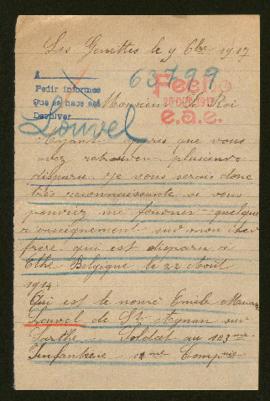 Les Genettes le 9 6bre 1917
A
Pedir informes
Que se hace saber
Devolver
63799
Fecho
30 DIC. 1917
e.a.e.
Monsieur le Roi
Louvel
Ayant appris que vous
avez retrouver plusieurs
disparu je vous serais donc
très reconnaissante si vous
pourriez me fournir quelque
renseignement sur mon cher
frère qui est disparu à
Ethe Belgique le 22 Août
1914.
Qui est le nomé Emile
Louvel de St Aignan sur
Sarthe Soldat au 103me
Infanterie 11me Compie